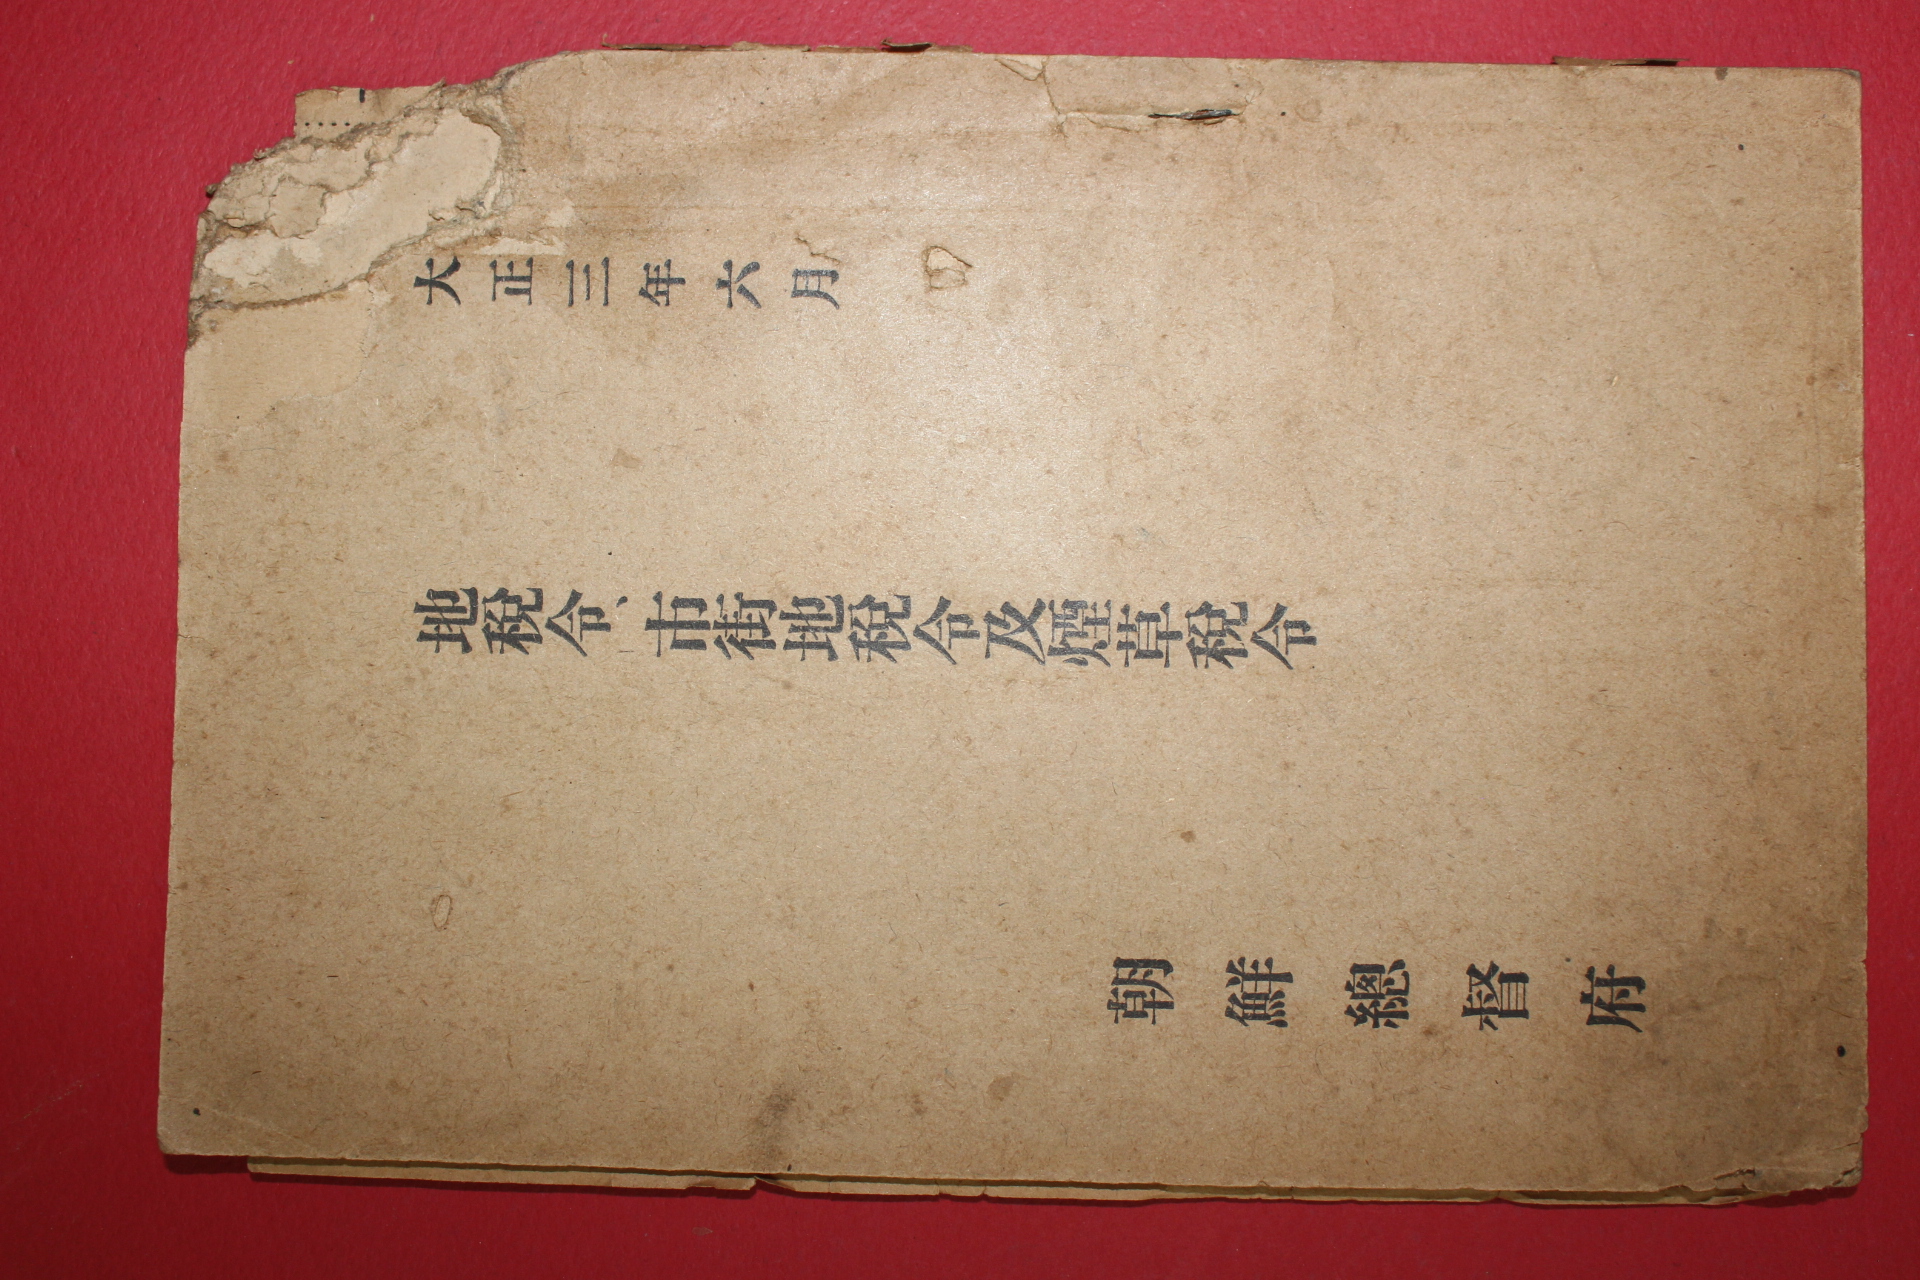 大正三年六月
地稅令、市街地稅令及煙草稅令
朝鮮總督府